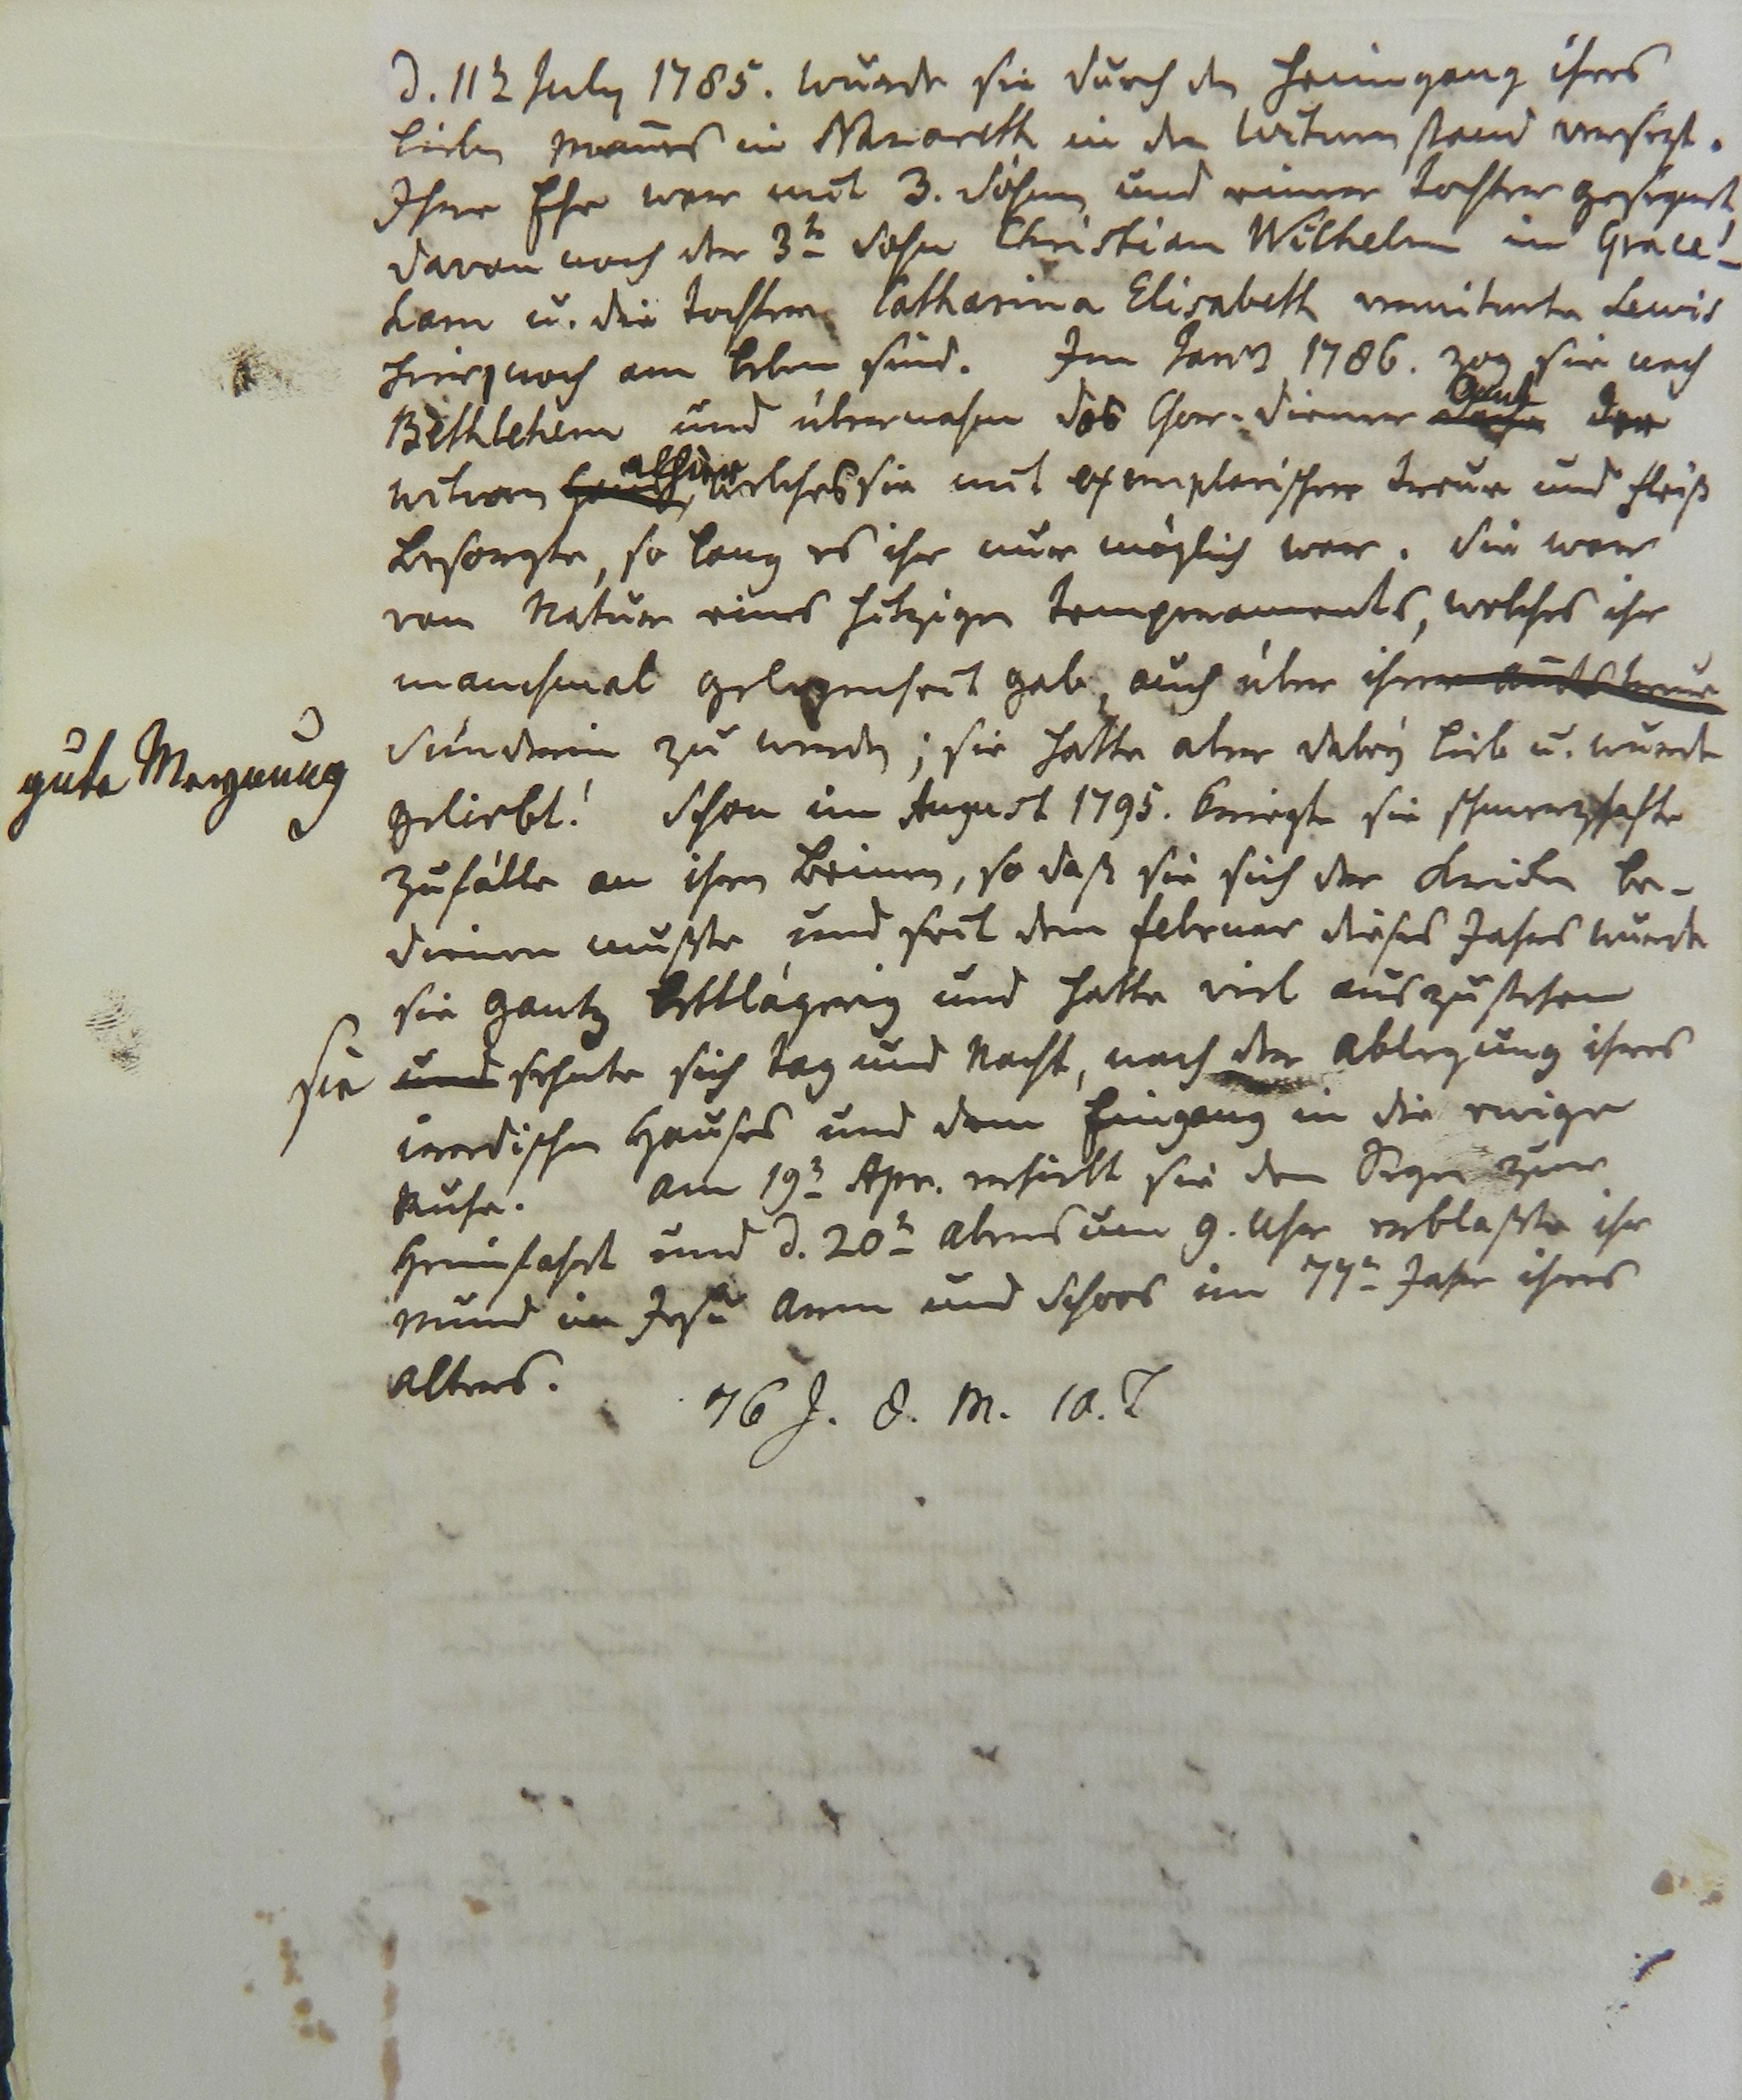 d. 11t July 1785. wurde sie durch den Heimgang ihres
lieben Mannes in Nazareth in den Witwen stand versezt.
Ihre Ehe war mit 3. Söhnen und einer Tochter gesegnet,
davon noch der 3te Sohn Christian Wilhelm in Grace-
ham u. die Tochter Catharina Elisabeth verwitwete Lewis
hier noch am Leben sind. Im Jan 1786. zog sie nach
Bethlehem und übernahm das Chor-diener Amt der
Witwen alhier, welches sie mit exemplarischer Treue und Fleiß
besorgte, so lang es ihr nur möglich war. Sie war
von Natur eines hitzigen Temperaments, welches ihr
manchmal gelegenheit gab, auch über ihrer Amts treue
gute Meynung
Sünderin zu werden; sie hatte aber dabey lieb u. wurde
geliebt! Schon im August 1795. kriegte sie schmerzhafte
Zufälle an ihren Beinen, so daß sie sich der Krücken be-
dienen mußte und seit dem Februar dieses Jahres wurde
sie gantz bettlägerig und hatte viel auszustehen
sie und sehnte sich Tag und Nacht, nach der Ablegung ihres
irrdischen Hauses und dem Eingang in die ewige
Ruhe. Am 19t Apr. erhielt sie den Segen zur
Heimfahrt und d. 20t Abends um 9. Uhr erblaßte ihr
Mund in Jesu Arm und Schoos im 77n Jahr ihres
Alters.
76 J. 8. M. 10. T